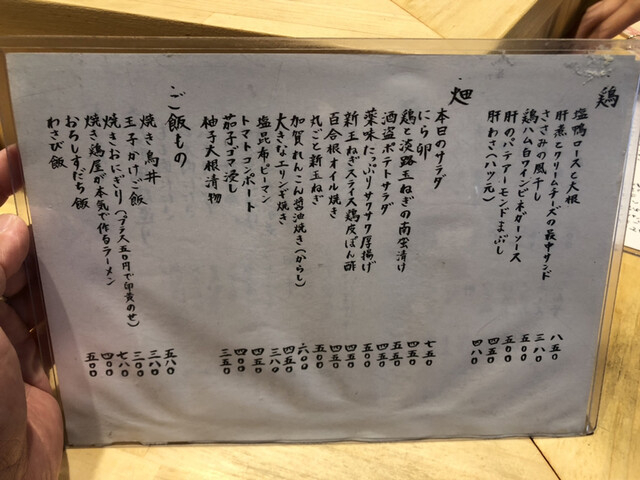 鶏
塩鴨ロースと大根 八五〇
肝煮とクリームチーズの最中サンド 三八〇
ささみの風干し 五〇〇
鶏ハム白ワインビネガーソース 五五〇
肝のパテアーモンドまぶし 四五〇
肝わさ(ハツ元) 四八〇
畑
本日のサラダ 七五〇
にら卵 四五〇
鶏と淡路玉ねぎの南蛮漬け 五五〇
酒盗ポテトサラダ 四五〇
薬味たっぷりサクサク厚揚げ 五五〇
新玉ねぎスライス鶏皮ぽん酢 四五〇
百合根オイル焼き 五五〇
丸ごと新玉ねぎ 五〇〇
加賀れんこん醤油焼き(からし) 六〇〇
大きなエリンギ焼き 四五〇
塩昆布ピーマン 三八〇
トマトコンポート 四五〇
茄子ゴマ浸し 四〇〇
柚子大根漬物 三五〇
ご飯もの
焼き鳥丼 五八〇
玉子かけご飯 三八〇
焼きおにぎり(プラス五〇円で卵黄のせ) 三〇〇
焼き鶏屋が本気で作るラーメン 七八〇
おろしすだち飯 四〇〇
わさび飯 五〇〇